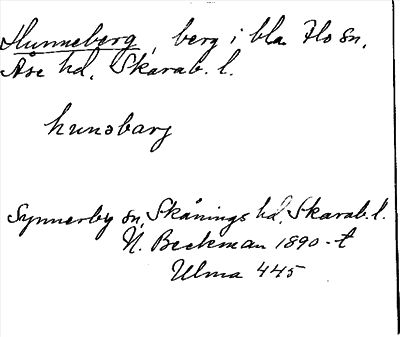 Hunneberg, berg i bla Flo sn,
Åse hd. Skarab. l.
hunəbarj
Synnerby sn, Skånings hd. Skarab. l.
N. Beckman 1890-t
Ulma 445